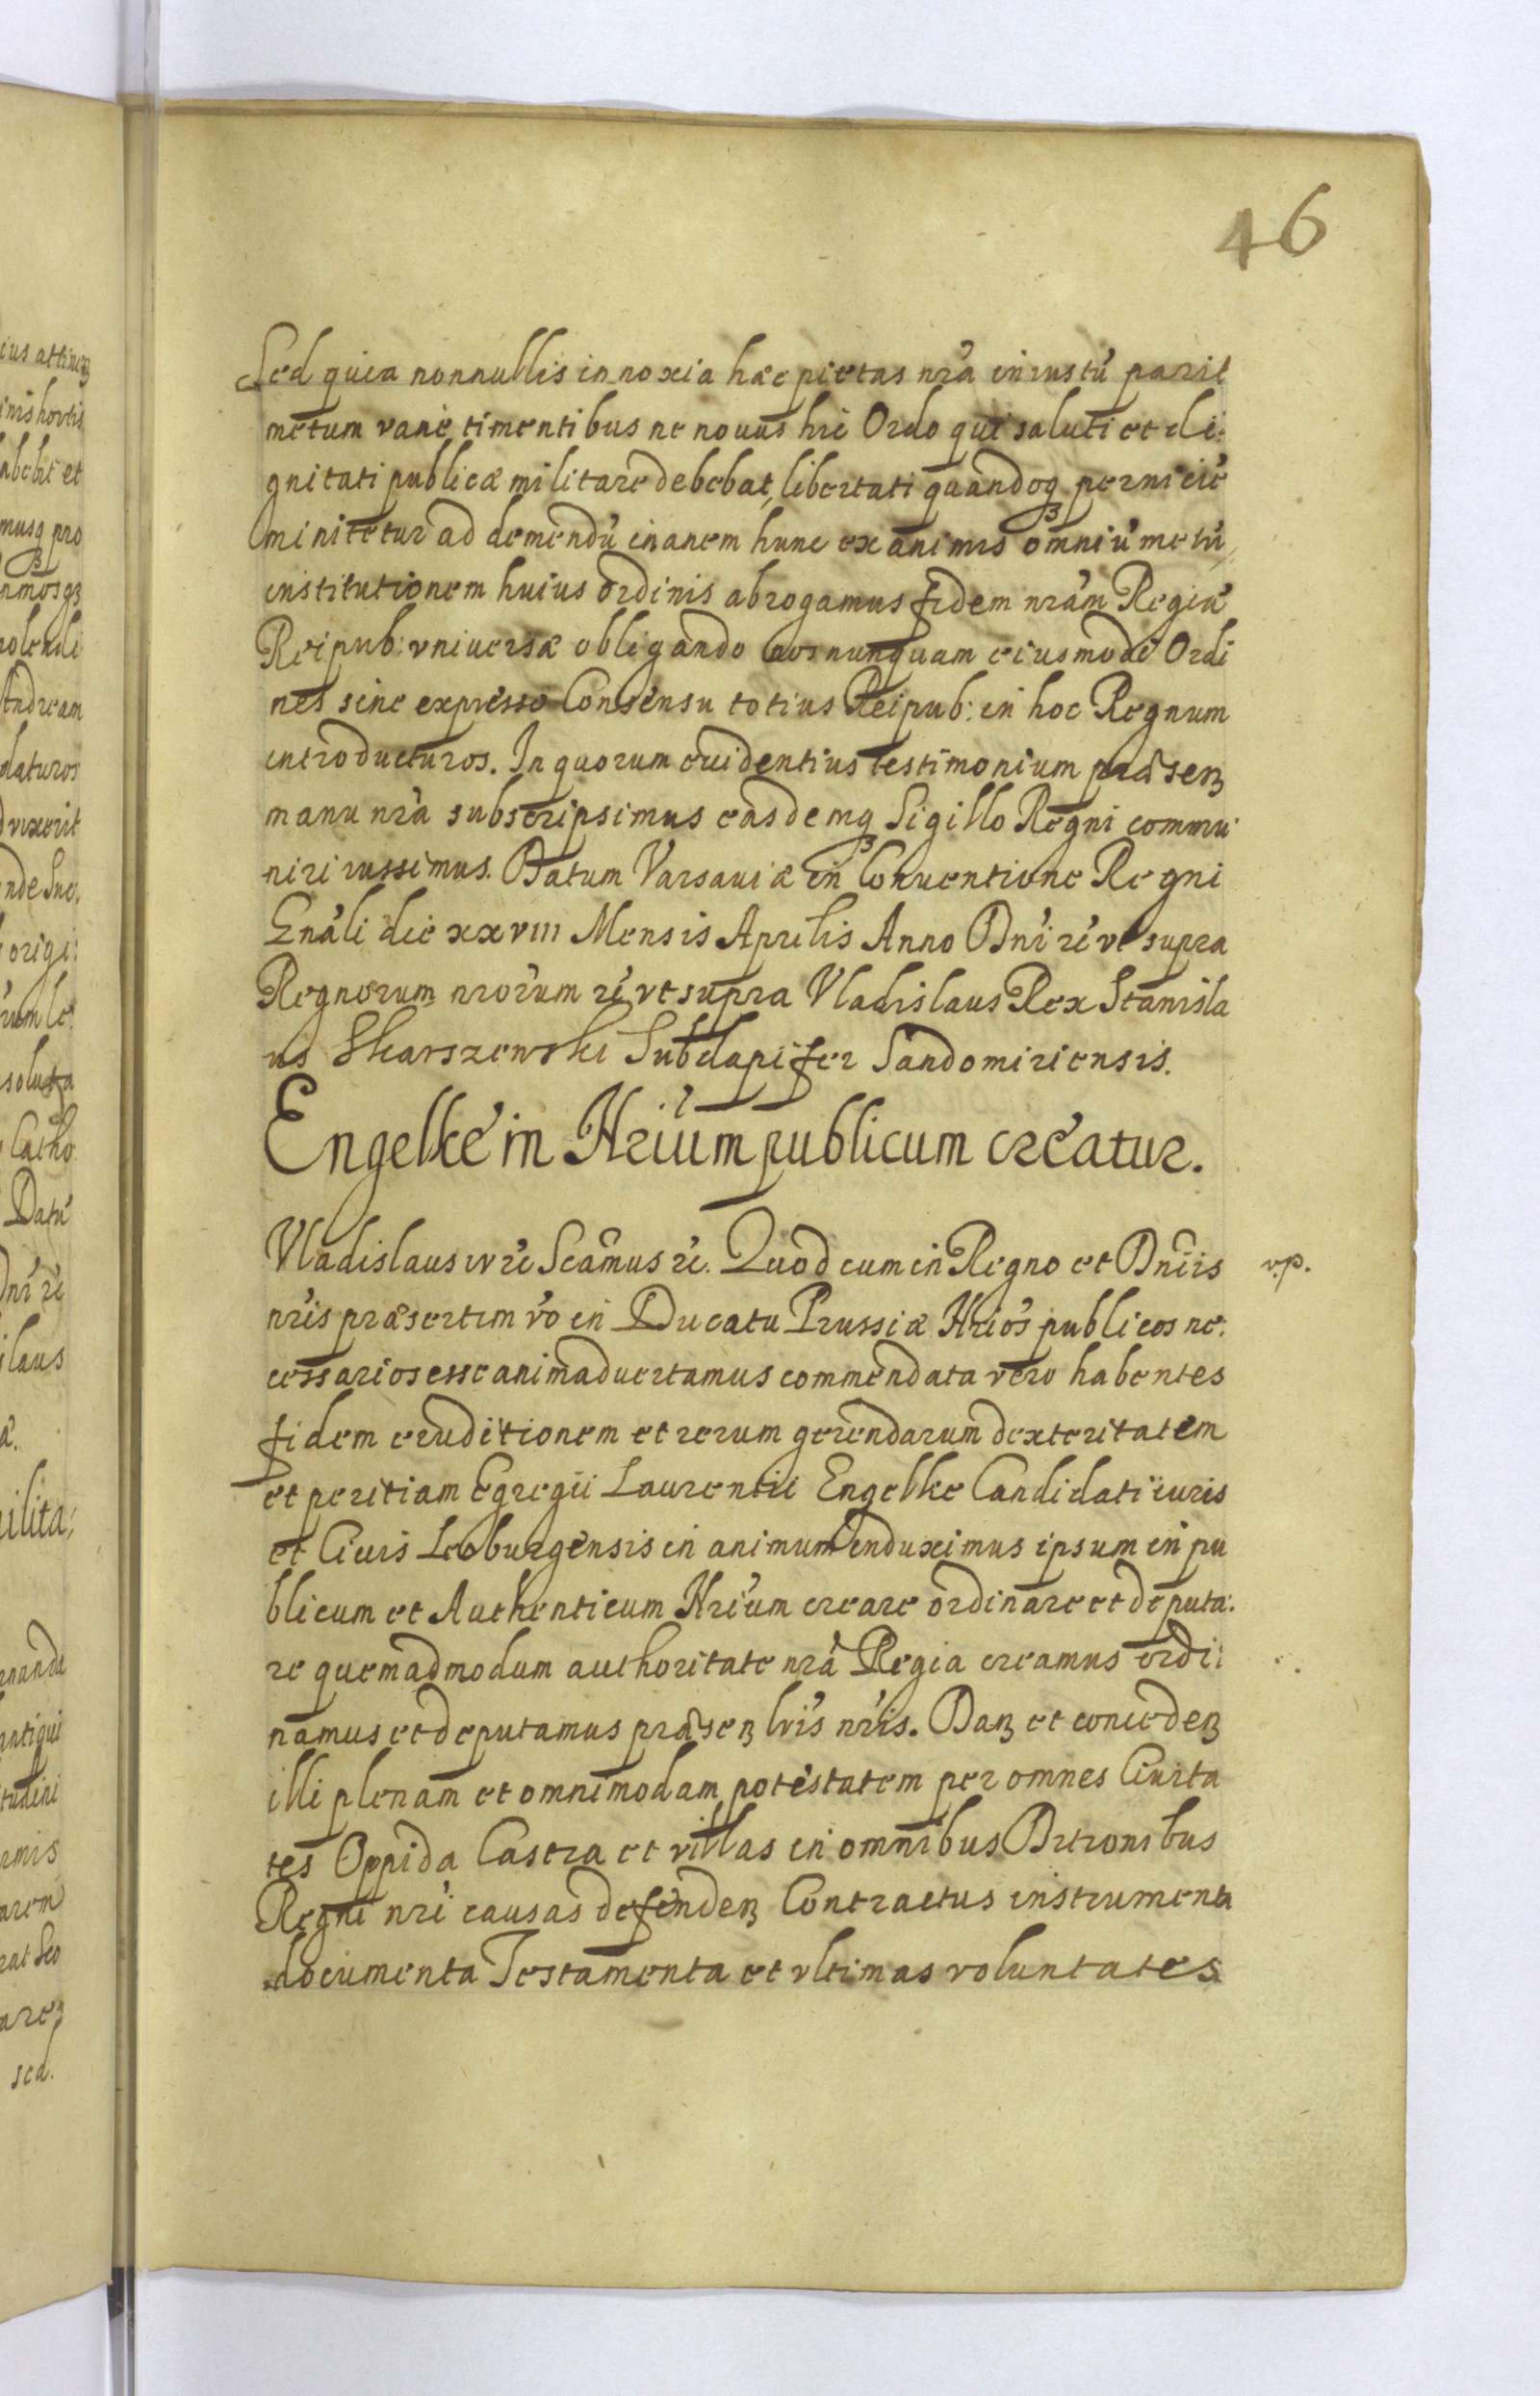 46
Sed quia nonnullis innoxia hæc pietas nrã iniustũ parit
metum vane timentibus ne nouus hic Ordo qui saluti et di:
gnitati publicæ militare debebat, libertati quandoqꝫ perniciẽ
minitetur ad demendũ inanem hunc ex animis omniũ metũ,
institutionem huius ordinis abrogamus fidem nrãm Regiã
Reipub: vniuersæ obligando nos nunquam eiusmodi Ordi
nes sine expresso Consensu totius Reipub: in hoc Regnum
introducturos. In quorum euidentius testimonium præsenꝫ
manu nrã subscripsimus easdemqꝫ Sigillo Regni commu
niri iussimus. Datum Varsauiæ in Conuentione Regni
Gnãli die xxviii Mensis Aprilis Anno Dni rc̃ vt supra
Regnorum nrorũm rc̃ vt supra Vladislaus Rex Stanisla
us Skarszewski Subdapifer Sandomiriensis.
Engelke in Nriũm publicum creatur.
Vladislaus iv rc̃ Scãmus rc̃. Quod cum in Regno et Dnĩis v.p.
nrĩs præsertim võ in Ducatu Prussiæ Nriõs publicos ne:
cessarios esse animaduertamus commendata vero habentes
fidem eruditionem et rerum gerendarum dexteritatem
et peritiam Egregii Laurentii Engelke Candidati iuris
et Ciuis Leoburgensis in animum induximus ipsum in pu
blicum et Authenticum Nriũm creare ordinare et deputa:
re quemadmodum authoritate nrã Regia creamus ordi:
namus et deputamus præsenꝫ lrĩs nrĩs. Danꝫ et concedenꝫ
illi plenam et omnimodam potestatem per omnes Ciuita
tes Oppida Castra et villas in omnibus Ditionibus
Regni nrĩ causas defendenꝫ Contractus instrumenta
documenta Testamenta et vltimas voluntates